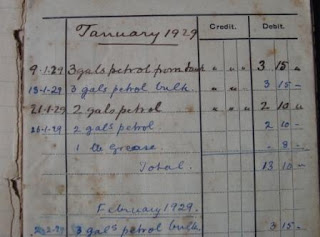 January 1929
Credit. Debit.
9-1-29 3 gals petrol from bulk " " " 3 15 "
13-1-29 3 gals petrol bulk. " " 3 15 -
21-1-29 2 gals petrol " " " 2 10 "
2 gals petrol 2 10 -
1 lb Grease - 8 -
Total. 13 10 -
February 1929.
3 gals petrol bulk 3 15 -